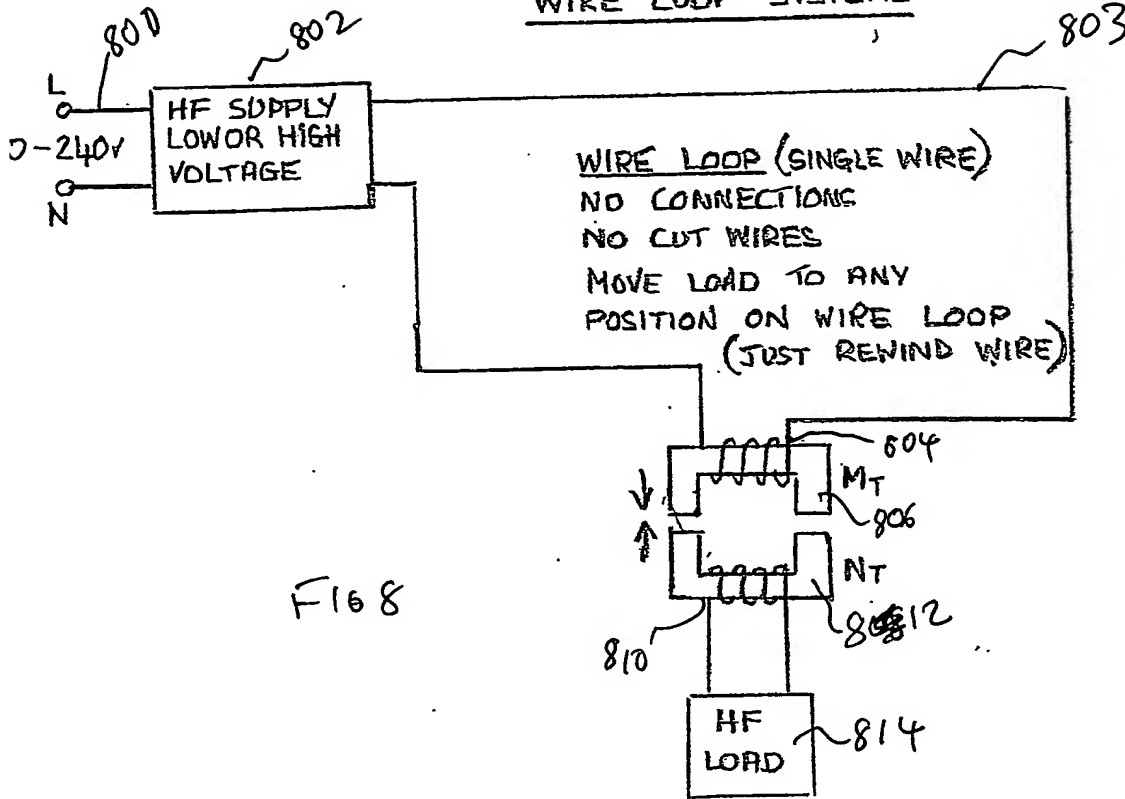 WIRE LOOP SYSTEMS
800
802
803
L
0-240V
N
HF SUPPLY
LOWOR HIGH
VOLTAGE
WIRE LOOP (SINGLE WIRE)
NO CONNECTIONS
NO CUT WIRES
MOVE LOAD TO ANY
POSITION ON WIRE LOOP
(JUST REWIND WIRE)
804
MT
806
NT
812
810
FIG 8
HF
LOAD
814